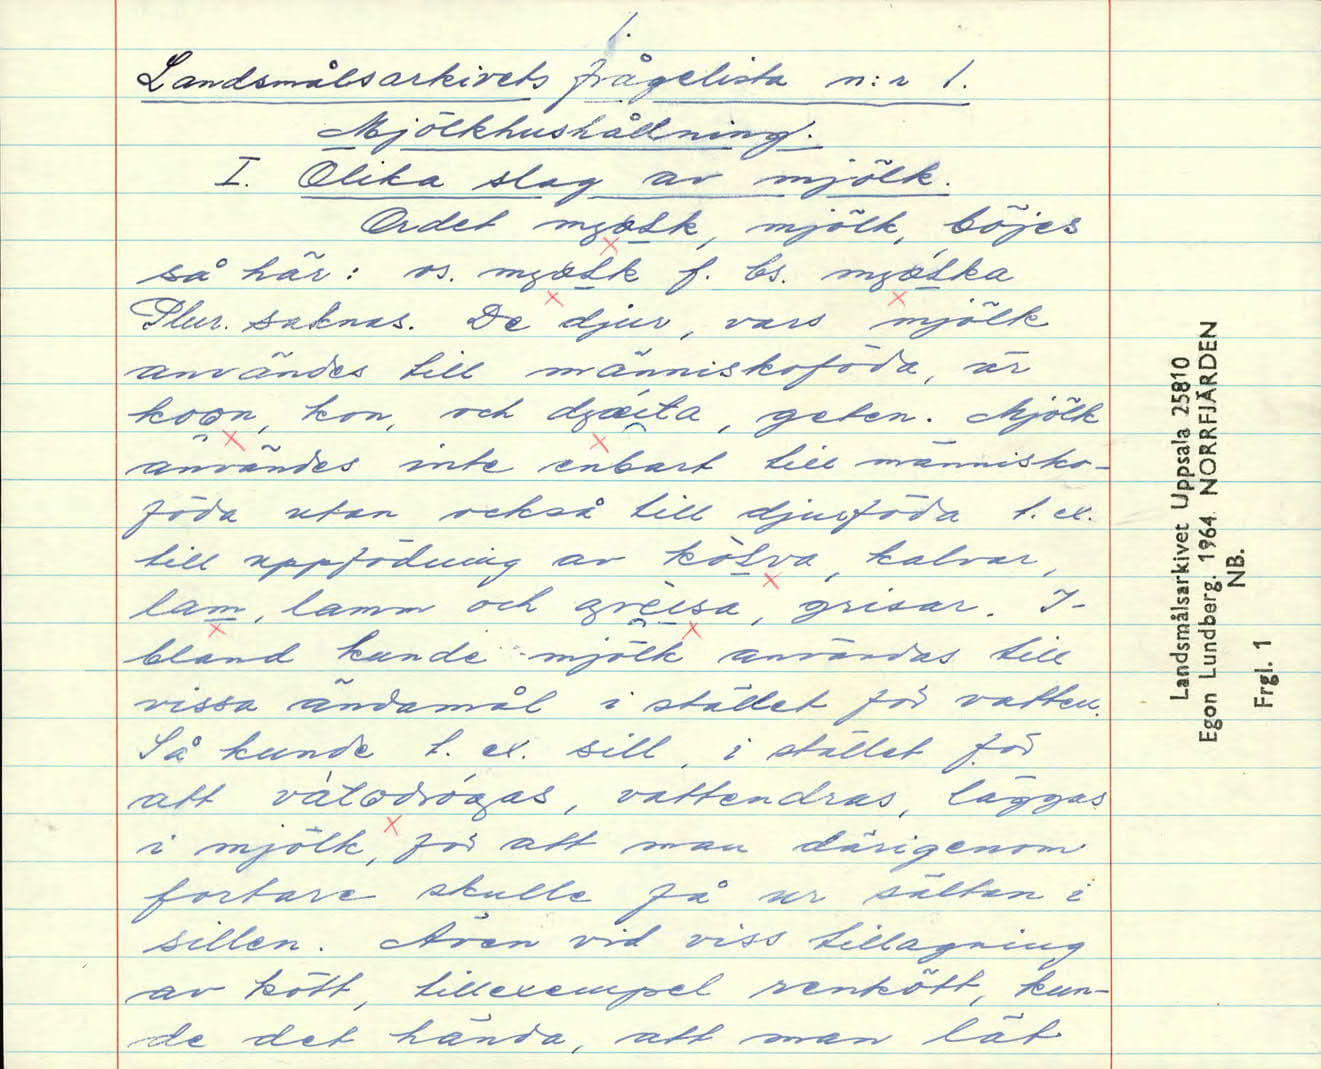 1.
Landsmålsarkivets frågelista n:r 1.
Mjölkhushållning.
I. Olika slag av mjölk.
Ordet mjölk, böjes
så här: os. f. bs.
Plur. saknas. De djur, vars mjölk
användes till människoföda, är
kon, och geten. Mjölk
användes inte enbart till människo-
föda utan också till djurföda t. ex.
till uppfödning av kalvar,
lam, lamm och grisar. I-
bland kunde mjölk användas till
vissa ändamål i stället för vatten.
Så kunde t. ex. sill, i stället för
att vattendras, läggas
i mjölk, för att man därigenom
fortare skulle få ur sältan i
sillen. Även vid viss tillagning
av kött, tillexempel renkött, kun-
de det hända, att man lät
Landsmålsarkivet Uppsala 25810
Egon Lundberg. 1964 NORRFJÄRDEN
NB.
Frgl. 1